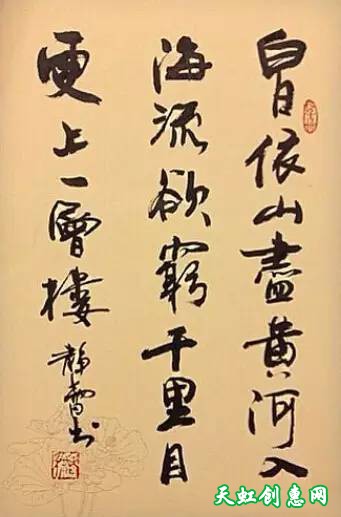 白日依山盡黄河入
海流欲窮千里目
更上一層樓
靜雪书
天虹创惠网